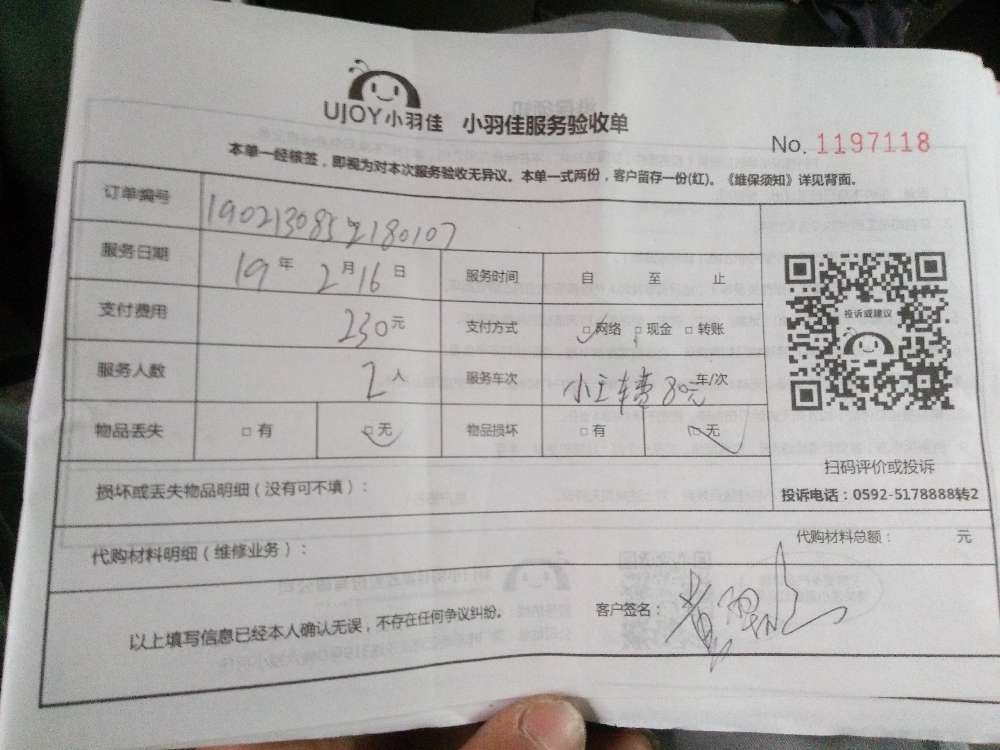 UJOY小羽佳 小羽佳服务验收单
No. 1197118
本单一经核签，即视为对本次服务验收无异议。本单一式两份，客户留存一份(红)。《维保须知》详见背面。
订单编号
服务日期 19 年 2 月 16 日 服务时间 自 至 止
支付费用 230 元 支付方式 □网络 □现金 □转账
服务人数 2 人 服务车次 80元 车/次
物品丢失 □有 □无 物品损坏 □有 □无
投诉或建议
扫码评价或投诉
投诉电话：0592-5178888转2
损坏或丢失物品明细（没有可不填）：
代购材料明细（维修业务）： 代购材料总额： 元
以上填写信息已经本人确认无误，不存在任何争议纠纷。 客户签名：